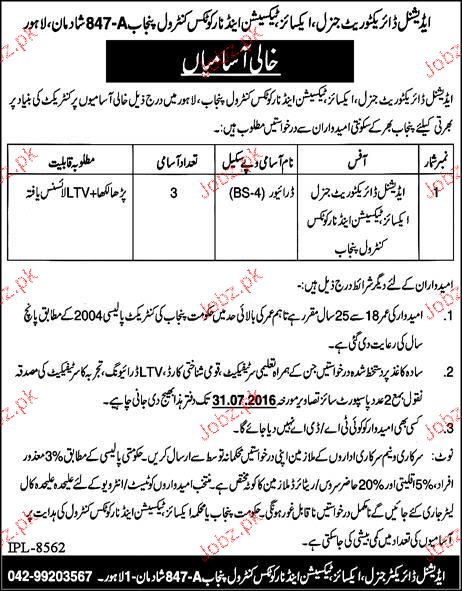 ایڈیشنل ڈائریکٹوریٹ جنرل، ایکسائز، ٹیکسیشن اینڈ نارکوٹکس کنٹرول پنجاب 847-A شادمان، لاہور
خالی آسامیاں
ایڈیشنل ڈائریکٹوریٹ جنرل، ایکسائز، ٹیکسیشن اینڈ نارکوٹکس کنٹرول پنجاب، لاہور میں درج ذیل خالی آسامیوں پر کنٹریکٹ کی بنیاد پر
بھرتی کیلئے پنجاب بھر کے سکونتی امیدواران سے درخواستیں مطلوب ہیں:-
نمبر شمار آفس نام آسامی و پے سکیل تعداد آسامی مطلوبہ قابلیت
1 ایڈیشنل ڈائریکٹوریٹ جنرل ڈرائیور (BS-4) 3 پڑھا لکھا + LTV لائسنس یافتہ
ایکسائز، ٹیکسیشن اینڈ نارکوٹکس
کنٹرول پنجاب
امیدواران کے لئے دیگر شرائط درج ذیل ہیں:-
1. امیدوار کی عمر 18 سے 25 سال مقرر ہے تاہم عمر کی بالائی حد میں حکومت پنجاب کی کنٹریکٹ پالیسی 2004 کے مطابق پانچ
سال کی رعایت دی گئی ہے۔
2. سادہ کاغذ پر دستخط شدہ درخواستیں جن کے ہمراہ تعلیمی سرٹیفکیٹ، قومی شناختی کارڈ، LTV ڈرائیونگ، تجربہ کا سرٹیفکیٹ کی مصدقہ
نقول بمع 2 عدد پاسپورٹ سائز تصاویر مورخہ 31.07.2016 تک دفتر ہذا بھیج دی جانی چاہیے۔
3. کسی بھی امیدوار کو کوئی ٹی اے/ڈی اے نہیں دیا جائے گا۔
نوٹ: سرکاری و نیم سرکاری اداروں کے ملازمین اپنی درخواستیں محکمانہ توسط سے ارسال کریں۔ حکومتی پالیسی کے مطابق 3% معذور
افراد، 5% اقلیتی اور 20% حاضر سروس/ریٹائرڈ ملازمین کا کوٹہ مختص ہے۔ منتخب امیدواروں کو ٹیسٹ/انٹرویو کے لئے علیحدہ علیحدہ کال
لیٹر جاری کئے جائیں گے نامکمل درخواستیں ناقابل غور ہونگی۔ حکومت پنجاب یا محکمہ ایکسائز، ٹیکسیشن اینڈ نارکوٹکس کنٹرول کی ہدایت پر
آسامیوں کی تعداد میں کمی بیشی کی جا سکتی ہے۔
IPL-8562
ایڈیشنل ڈائریکٹر جنرل، ایکسائز، ٹیکسیشن اینڈ نارکوٹکس کنٹرول پنجاب 847-A شادمان-1 لاہور۔ 042-99203567
Jobz.pk